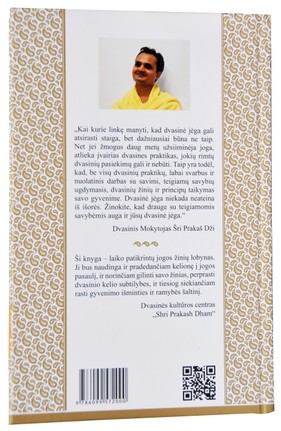 „Kai kurie linkę manyti, kad dvasinė jėga gali
atsirasti staiga, bet dažniausiai būna ne taip.
Net jei žmogus daug metų užsiiminėja joga,
atlieka įvairias dvasines praktikas, jokių rimtų
dvasinių pasiekimų gali ir nebūti. Taip yra todėl,
kad, be visų dvasinių praktikų, labai svarbus ir
nuolatinis darbas su savimi, teigiamų savybių
ugdymasis, dvasinių žinių ir principų taikymas
savo gyvenime. Dvasinė jėga niekada neateina
iš išorės. Žinokite, kad drauge su teigiamomis
savybėmis auga ir jūsų dvasinė jėga.“
Dvasinis Mokytojas Šri Prakaš Dži
Ši knyga – laiko patikrintų jogos žinių lobynas.
Ji bus naudinga ir pradedančiam kelionę į jogos
pasaulį, ir norinčiam gilinti savo žinias, perprasti
dvasinio kelio subtilybes, ir tiesiog siekiančiam
rasti gyvenimo išminties ir ramybės šaltinį.
Dvasinės kultūros centras
„Shri Prakash Dham“